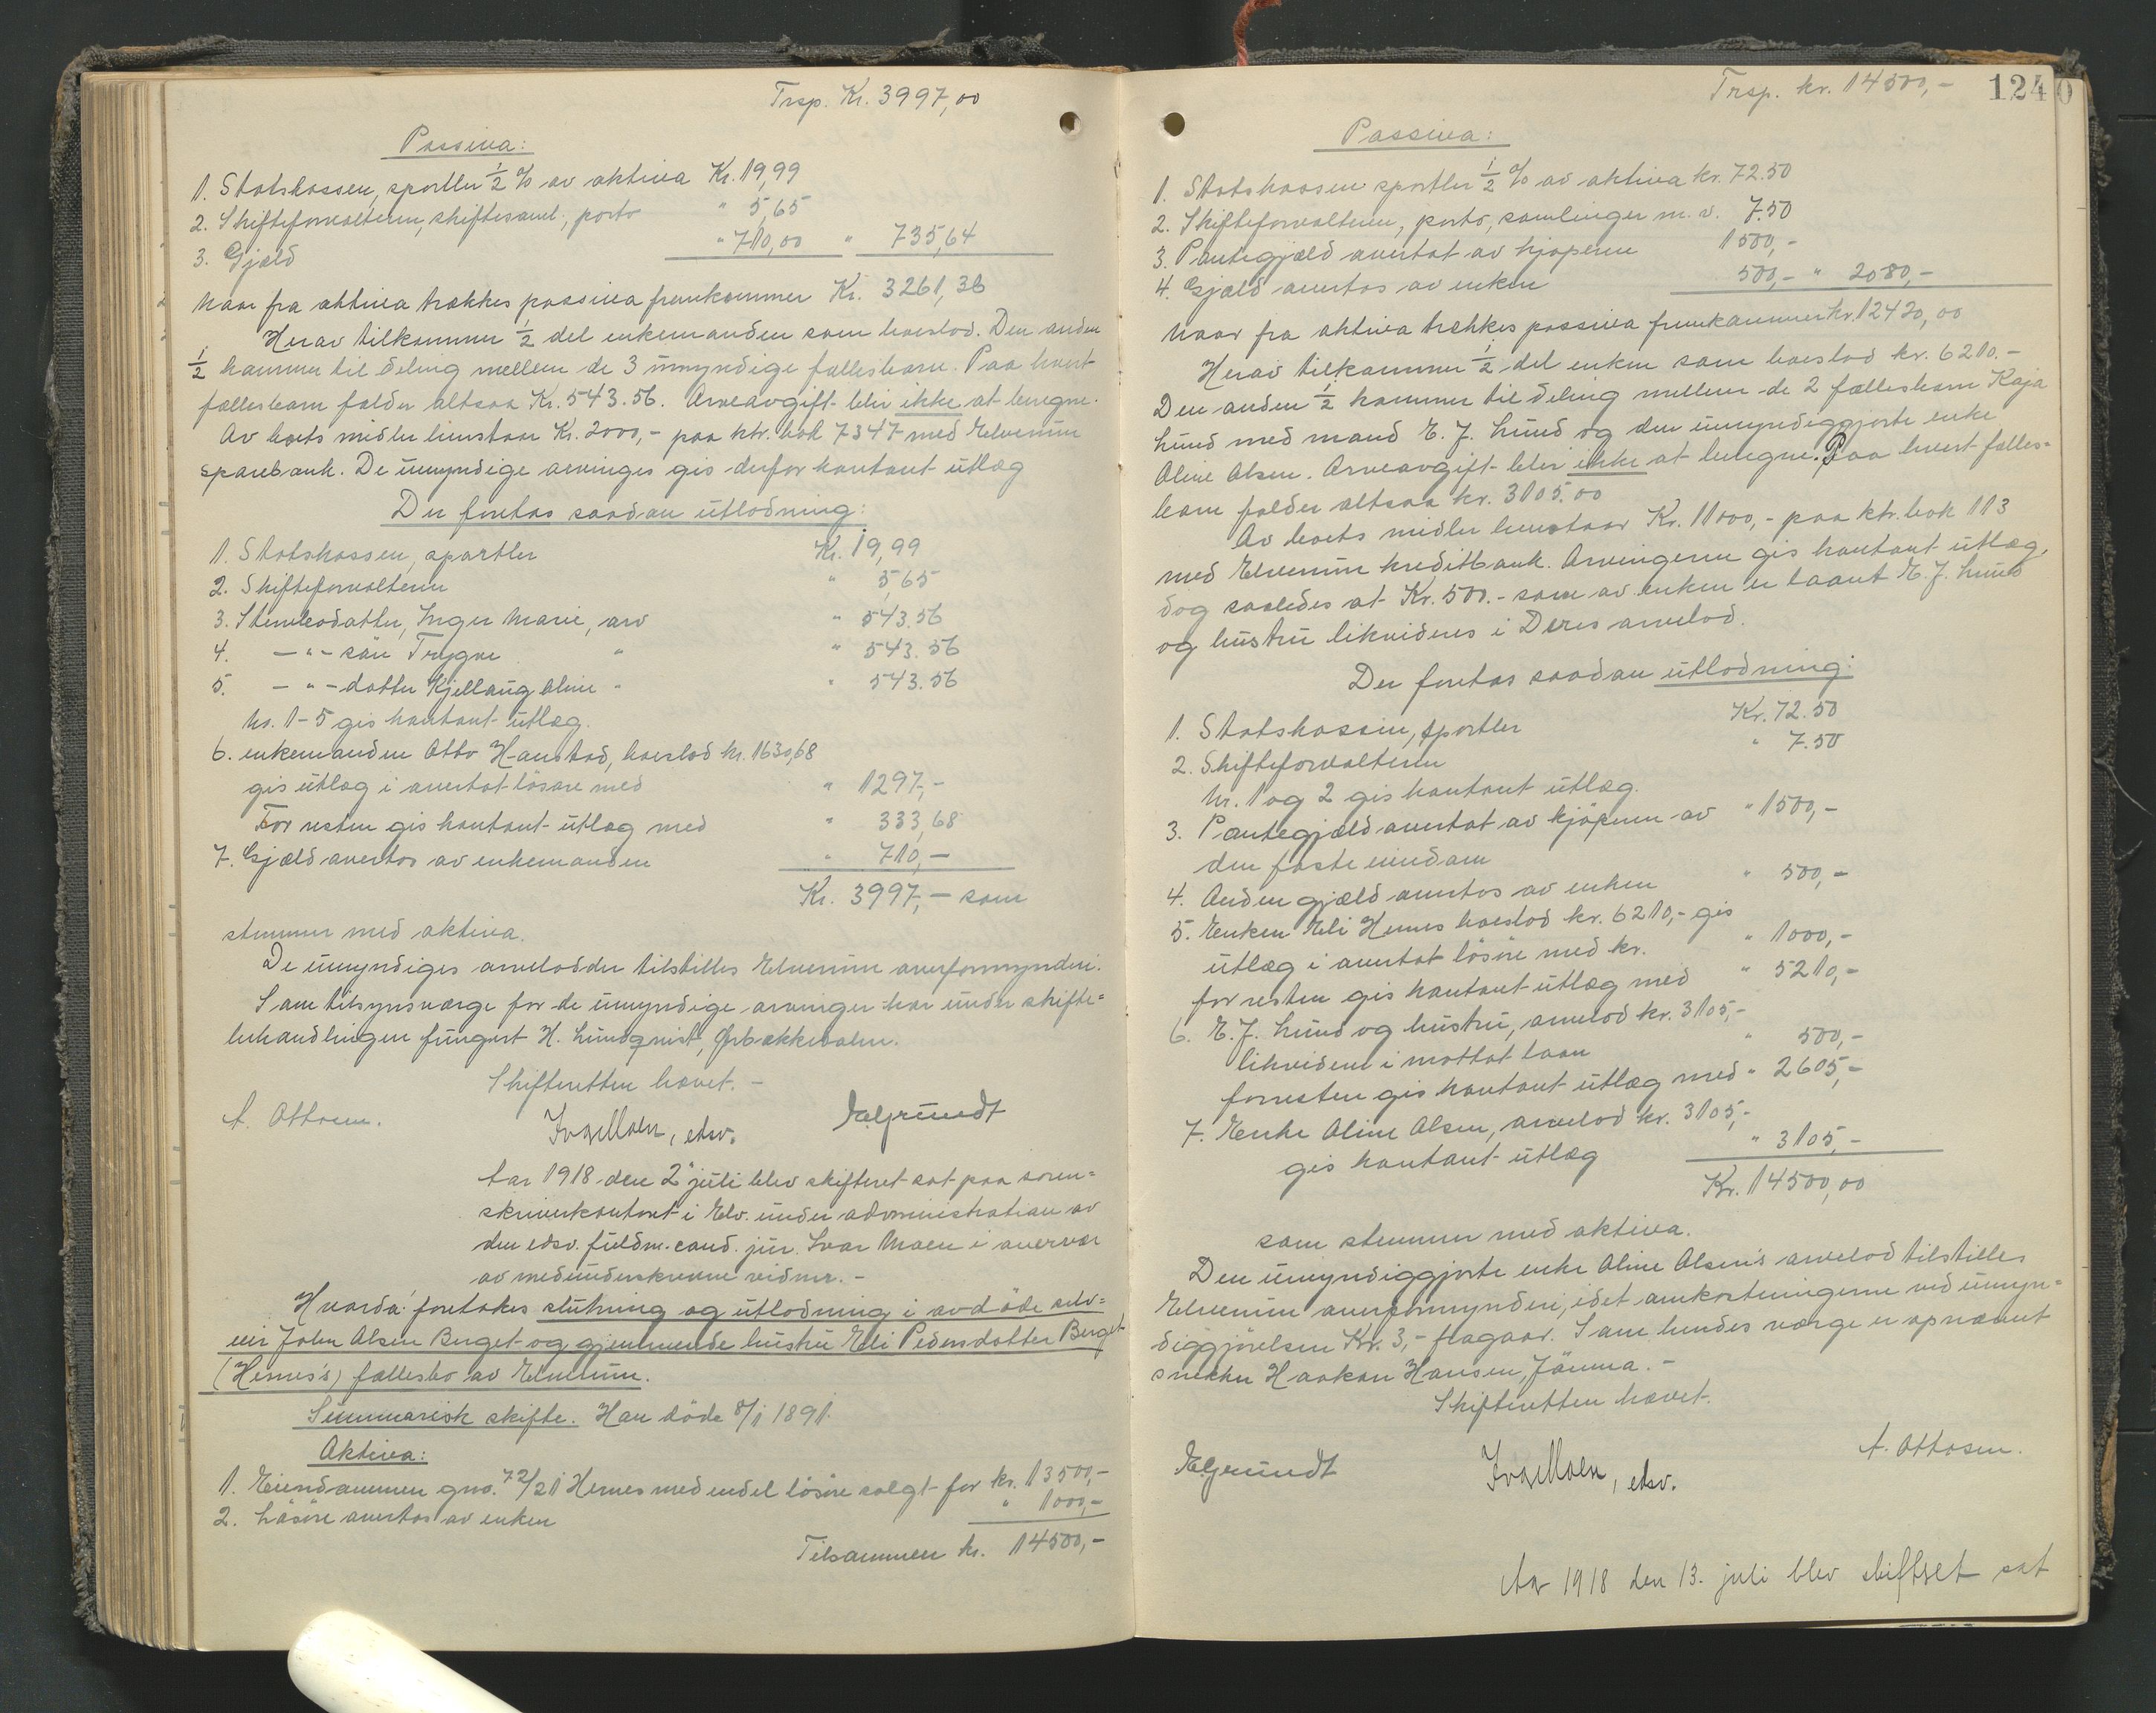 Trsp. Kr. 3997,00
Passiva:
1. Statskassen, sportler ½ % av aktiva Kr. 19,99
2. Skifteforvalteren, skiftesaml., porto " 5,65
3. Gjæld " 710,00 " 735,64
Naar fra aktiva trækkes passiva fremkommer Kr. 3261,36
Herav tilkommer ½ del enkemanden som boeslod. Den anden
½ kommer til deling mellem de 3 umyndige fællesbarn. Paa hvert
fællesbarn falder altsaa Kr. 543.56. Arveavgift blir ikke at beregne.
Av boets midler henstaar Kr. 2000,- paa ktr. bok 7347 med Elverum
sparebank. De umyndige arvinger gis derfor kontant utlæg
Der foretas saadan utlodning:
1. Statskassen, sportler Kr. 19,99
2. Skifteforvalteren " 5,65
3. Stervbodatter, Inger Marie, arv " 543.56
4. -"- søn Trygve " " 543.56
5. -"- datter Kjellaug Oline " " 543.56
Nr. 1-5 gis kontant utlæg.
6. enkemanden Otto Hanstad, boeslod kr. 1630,68
gis utlæg i avertat løsøre med " 1297,-
For resten gis kontant utlæg med " 333,68
7. Gjæld avertas av enkemanden " 710,-
Kr. 3997,- som
stemmer med aktiva.
De umyndiges arvelodder tilstilles Elverum overformynderi.
Som tilsynsværge for de umyndige arvinger har under skifte=
behandlingen fungert H. Lundqvist, Grbækkedalen.
Skifteretten hævet. -
A. Ottosen. Ivar Moen, edsv. E. Grundt
Aar 1918 den 2 juli blev skifteret sat paa soren=
skriverkontoret i Elv. under administration av
den edsv. fuldm. cand. jur. Ivar Moen i overvær
av medunderskrevne vidner. -
Hvorda: foretokes slutning og utlodning i avdøde selv=
eier John Olsen Berget og gjenlevende hustru Eli Pedersdatter Berget
(Hernes's) fællesbo av Elverum.
Summarisk skifte. Han døde 8/1 1891.
Aktiva:
1. Eiendommen gno. 72/21 Hernes med endel løsøre solgt for kr. 13500,-
2. Løsøre avertas av enken " 1000,-
Tilsammen kr. 14500,-
Trsp. kr. 14500,- 1240
Passiva:
1. Statskassen sportler ½ % av aktiva kr. 72.50
2. Skifteforvalteren, porto, samlinger m. v. 7.50
3. Pantegjæld avertat av kjøperen 1500,-
4. Gjæld avertas av enken 500,- " 2080,-
Naar fra aktiva trækkes passiva fremkommer kr. 12420,00
Herav tilkommer ½ del enken som boeslod kr. 6210.-
Den anden ½ kommer til deling mellem de 2 fællesbarn Kaja
Lund med mand E. J. Lund og den umyndiggjorte enke
Oline Olsen. Arveavgift blir ikke at beregne. Paa hvert fælles=
barn falder altsaa kr. 3105.00
Av boets midler henstaar Kr. 11000,- paa ktr. bok 113
med Elverum kreditbank. Arvingerne gis kontant utlæg,
dog saaledes at Kr. 500.- som av enken er laant E. J. Lund
og hustru likvideres i Deres arvelod.
Der foretas saadan utlodning:
1. Statskassen, sportler Kr. 72.50
2. Skifteforvalteren " 7.50
Nr. 1 og 2 gis kontant utlæg.
3. Pantegjæld avertat av kjøperen av " 1500,-
den faste eiendom
4. Anden gjæld avertas av enken " 500,-
5. Enken Eli Hernes boeslod kr. 6210,- gis
utlæg i avertat løsøre med kr. " 1000,-
for resten gis kontant utlæg med " 5210,-
6. E. J. Lund og hustru, arvelod kr. 3105,-
likvideres i mottat laan " 500,-
forresten gis kontant utlæg med " 2605,-
7. Enke Oline Olsen, arvelod kr. 3105,-
gis kontant utlæg " 3105,-
Kr. 14500,00
som stemmer med aktiva.
Den umyndiggjorte enke Oline Olsen's arvelod tilstilles
Elverum overformynderi, idet omkostningerne ved umyn=
diggjørelsen Kr. 3,- fragaar. Som hendes værge er opnævnt
snekker Haakon Hansen, Jømna. -
Skifteretten hævet.
E. Grundt Ivar Moen, edsv. A. Ottosen.
Aar 1918 den 13. juli blev skifteret sat